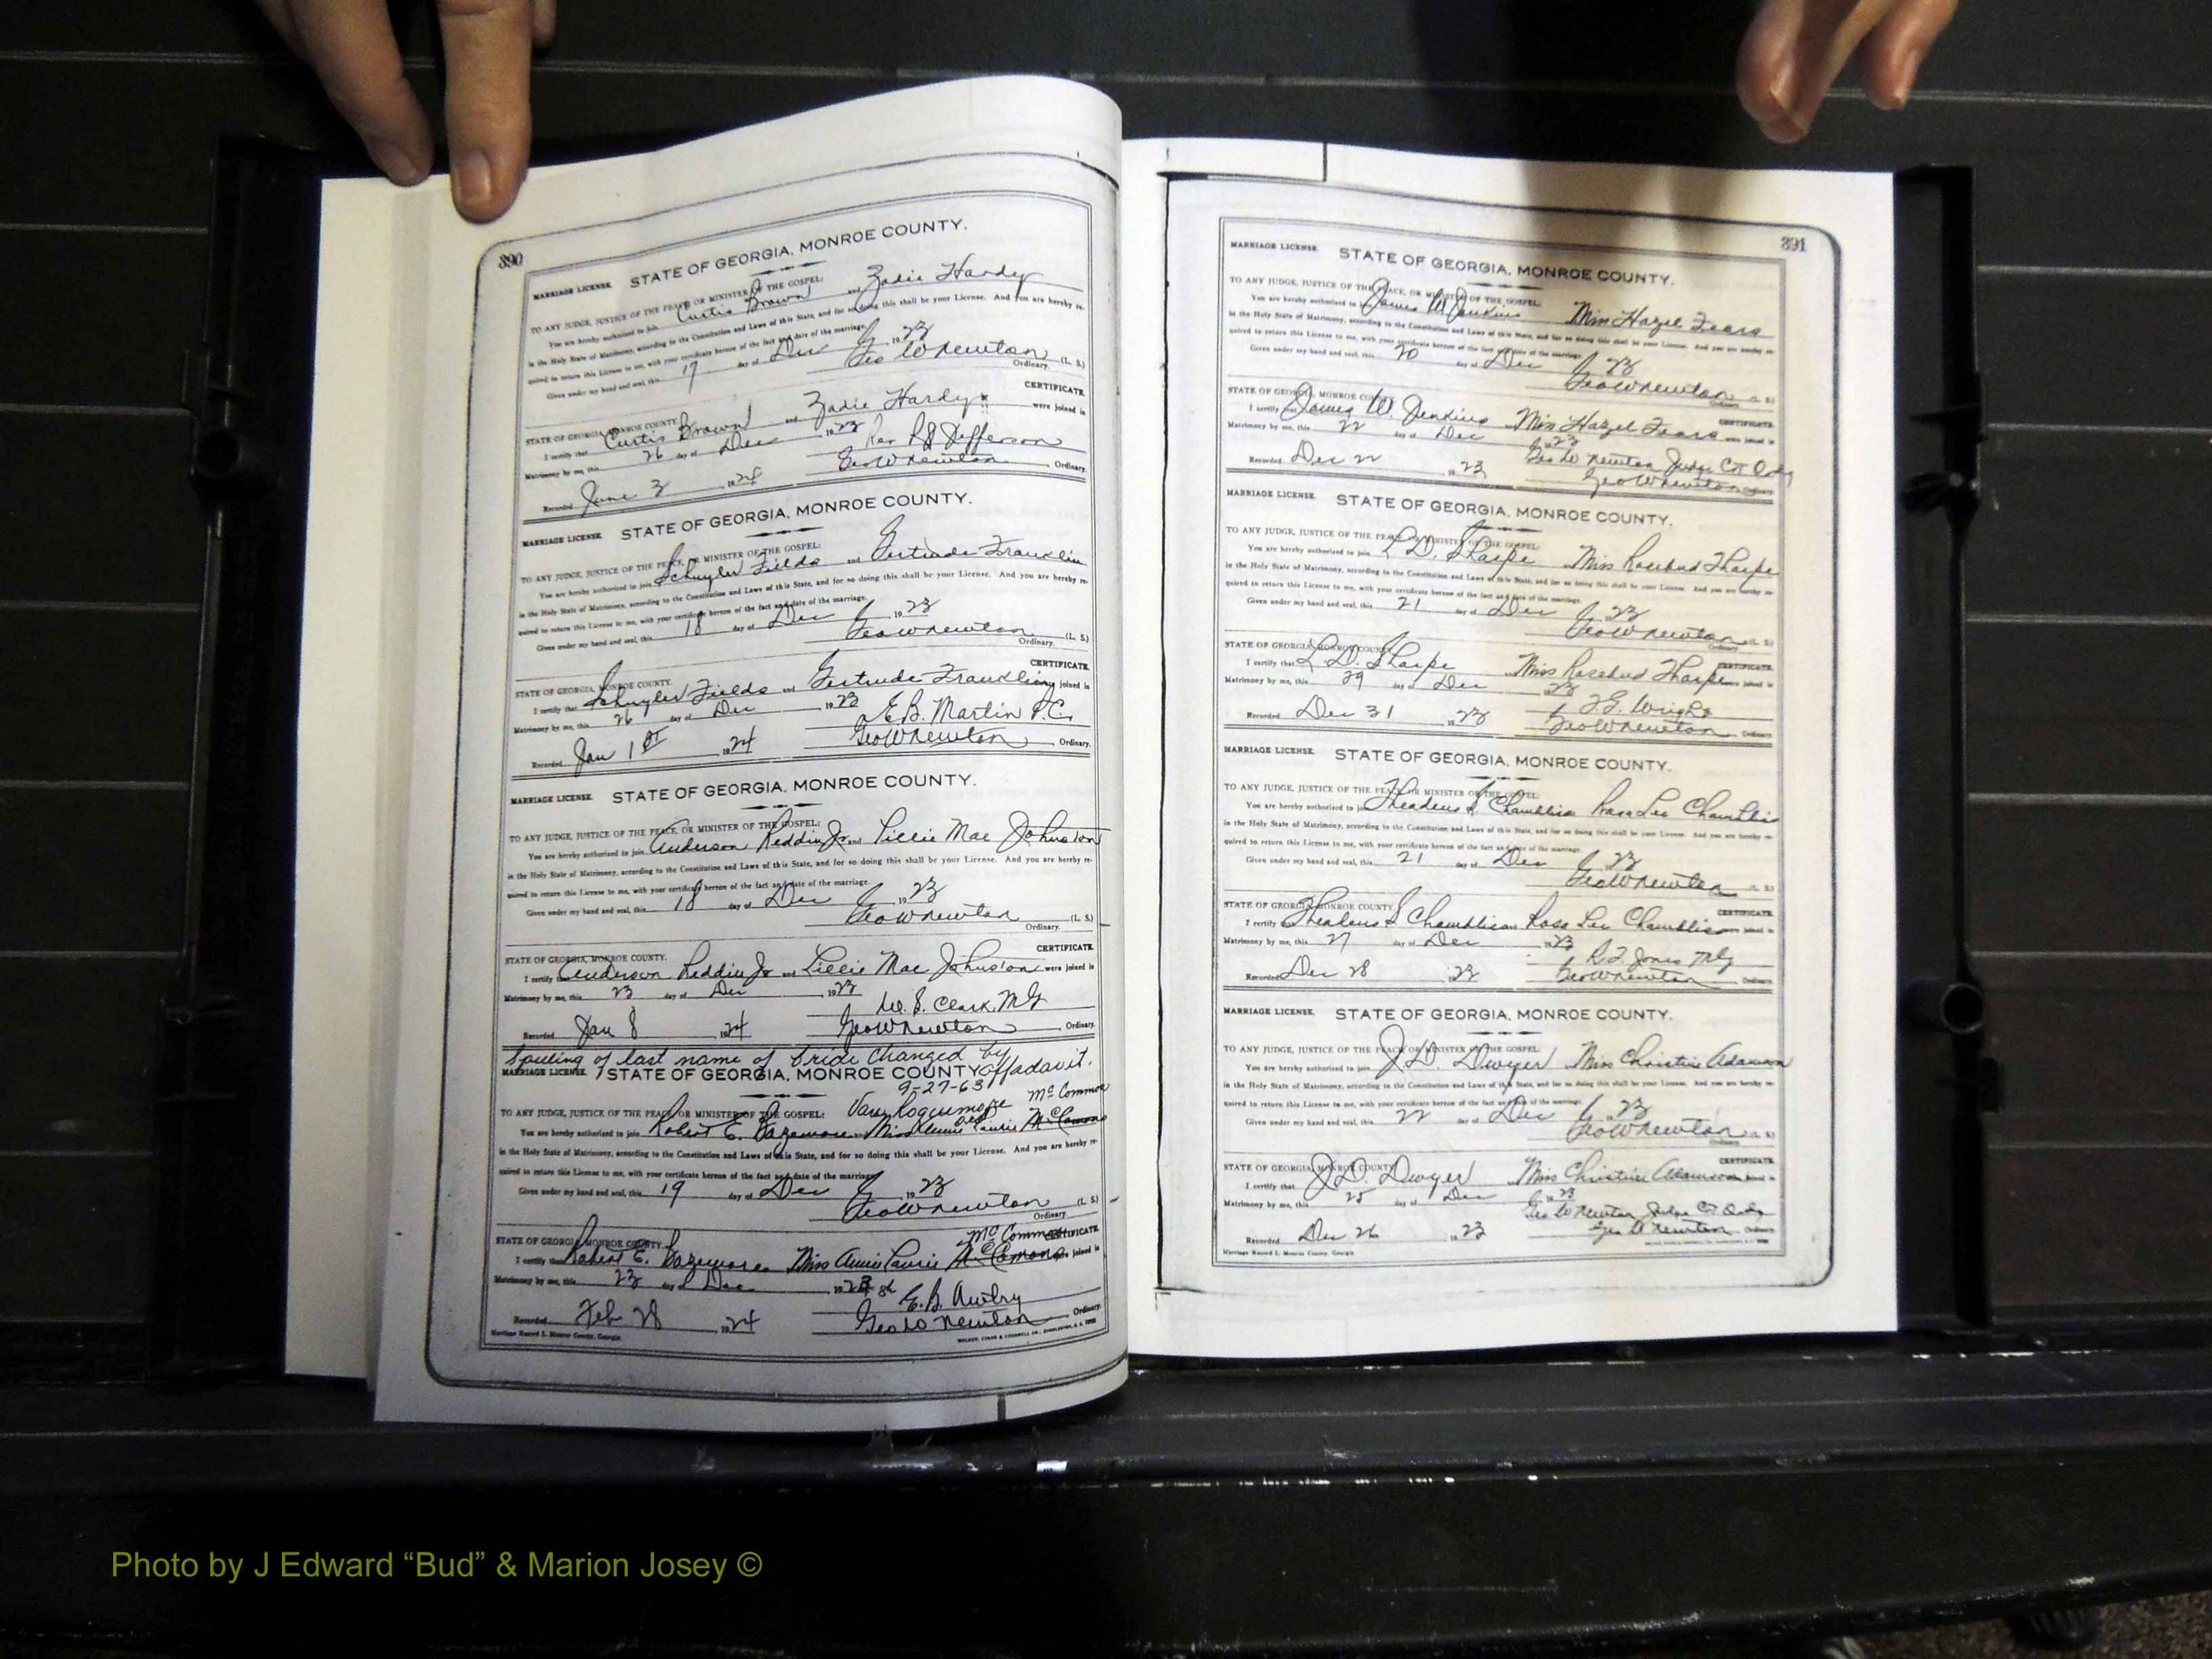 390
MARRIAGE LICENSE. STATE OF GEORGIA, MONROE COUNTY.
TO ANY JUDGE, JUSTICE OF THE PEACE OR MINISTER OF THE GOSPEL:
You are hereby authorized to join Curtis Brown and Zadie Hardy
in the Holy State of Matrimony, according to the Constitution and Laws of this State, and for so doing this shall be your License. And you are hereby re-
quired to return this License to me, with your certificate hereon of the fact and date of the marriage.
Given under my hand and seal, this 17 day of Dec 1923
Geo W Newton (L. S.)
Ordinary.
STATE OF GEORGIA, MONROE COUNTY. CERTIFICATE
I certify that Curtis Brown and Zadie Hardy were joined in
Matrimony by me, this 26 day of Dec 1923 Rev Jefferson
Recorded June 3 1924 Geo W Newton Ordinary.
MARRIAGE LICENSE. STATE OF GEORGIA, MONROE COUNTY.
TO ANY JUDGE, JUSTICE OF THE PEACE, OR MINISTER OF THE GOSPEL:
You are hereby authorized to join Schuyler Fields and Gertrude Franklin
in the Holy State of Matrimony, according to the Constitution and Laws of this State, and for so doing this shall be your License. And you are hereby re-
quired to return this License to me, with your certificate hereon of the fact and date of the marriage.
Given under my hand and seal, this 18 day of Dec 1923
Geo W Newton (L. S.)
Ordinary.
STATE OF GEORGIA, MONROE COUNTY. CERTIFICATE
I certify that Schuyler Fields and Gertrude Franklin joined in
Matrimony by me, this 26 day of Dec 1923 E.B. Martin
Recorded Jan 1st 1924 Geo W Newton, Ordinary.
MARRIAGE LICENSE. STATE OF GEORGIA, MONROE COUNTY.
TO ANY JUDGE, JUSTICE OF THE PEACE, OR MINISTER OF THE GOSPEL:
You are hereby authorized to join Anderson Reddin Jr and Lillie Mae Johnston
in the Holy State of Matrimony, according to the Constitution and Laws of this State, and for so doing this shall be your License. And you are hereby re-
quired to return this License to me, with your certificate hereon of the fact and date of the marriage.
Given under my hand and seal, this 18 day of Dec 1923
Geo W Newton (L. S.)
Ordinary.
STATE OF GEORGIA, MONROE COUNTY. CERTIFICATE
I certify Anderson Reddin Jr and Lillie Mae Johnston were joined in
Matrimony by me, this 23 day of Dec 1923
S. Clark, MG
Recorded Jan 8 1924 Geo W Newton, Ordinary.
Spelling of last name of bride changed by affadavit.
MARRIAGE LICENSE. STATE OF GEORGIA, MONROE COUNTY
9-27-63
McCommon
TO ANY JUDGE, JUSTICE OF THE PEACE, OR MINISTER OF THE GOSPEL:
You are hereby authorized to join Robert E. Bazemore Miss Annie Laurie McComons
in the Holy State of Matrimony, according to the Constitution and Laws of this State, and for so doing this shall be your License. And you are hereby re-
quired to return this License to me, with your certificate hereon of the fact and date of the marriage
Given under my hand and seal, this 19 day of Dec 1923
Geo W Newton (L. S.)
Ordinary
McCommon
STATE OF GEORGIA, MONROE COUNTY. CERTIFICATE
I certify that Robert E. Bazemore Miss Annie Laurie McComons were joined in
Matrimony by me, this 23 day of Dec 1923
E. B. Awtry
Recorded Feb 28 1924 Geo W Newton Ordinary.
Marriage Record L Monroe County, Georgia.
391
MARRIAGE LICENSE. STATE OF GEORGIA, MONROE COUNTY.
TO ANY JUDGE, JUSTICE OF THE PEACE, OR MINISTER OF THE GOSPEL:
You are hereby authorized to join James W Jenkins Miss Hazel Fears
in the Holy State of Matrimony, according to the Constitution and Laws of this State, and for so doing this shall be your License. And you are hereby re-
quired to return this License to me, with your certificate hereon of the fact and date of the marriage.
Given under my hand and seal, this 20 day of Dec 1923
Geo W Newton (L. S.)
STATE OF GEORGIA, MONROE COUNTY. CERTIFICATE
I certify that James W. Jenkins Miss Hazel Fears were joined in
Matrimony by me, this 22 day of Dec 1923
Geo W Newton Judge Ct Ordy
Recorded Dec 22 1923 Geo W Newton Ordinary
MARRIAGE LICENSE. STATE OF GEORGIA, MONROE COUNTY.
TO ANY JUDGE, JUSTICE OF THE PEACE, OR MINISTER OF THE GOSPEL:
You are hereby authorized to join L. D. Sharpe Miss Rosebud Tharpe
in the Holy State of Matrimony, according to the Constitution and Laws of this State, and for so doing this shall be your License. And you are hereby re-
quired to return this License to me, with your certificate hereon of the fact and date of the marriage.
Given under my hand and seal, this 21 day of Dec 1923
Geo W Newton (L. S.)
STATE OF GEORGIA, MONROE COUNTY. CERTIFICATE
I certify that L. D. Sharpe Miss Rosebud Tharpe were joined in
Matrimony by me, this 29 day of Dec 1923
Wright
Recorded Dec 31 1923 Geo W Newton Ordinary
MARRIAGE LICENSE. STATE OF GEORGIA, MONROE COUNTY.
TO ANY JUDGE, JUSTICE OF THE PEACE, OR MINISTER OF THE GOSPEL:
You are hereby authorized to join Theadeus S Chambliss Rosa Lee Chambliss
in the Holy State of Matrimony, according to the Constitution and Laws of this State, and for so doing this shall be your License. And you are hereby re-
quired to return this License to me, with your certificate hereon of the fact and date of the marriage.
Given under my hand and seal, this 21 day of Dec 1923
Geo W Newton (L. S.)
STATE OF GEORGIA, MONROE COUNTY. CERTIFICATE
I certify Theadeus S Chambliss Rosa Lee Chambliss were joined in
Matrimony by me, this 27 day of Dec 1923
Jones MG
Recorded Dec 28 1923 Geo W Newton Ordinary
MARRIAGE LICENSE. STATE OF GEORGIA, MONROE COUNTY.
TO ANY JUDGE, JUSTICE OF THE PEACE OR MINISTER OF THE GOSPEL:
You are hereby authorized to join J. D. Dwyer Miss Christine Adamson
in the Holy State of Matrimony, according to the Constitution and Laws of this State, and for so doing this shall be your License. And you are hereby re-
quired to return this License to me, with your certificate hereon of the fact and date of the marriage.
Given under my hand and seal, this 22 day of Dec 1923
Geo W Newton (L. S.)
STATE OF GEORGIA, MONROE COUNTY. CERTIFICATE
I certify that J. D. Dwyer Miss Christine Adamson joined in
Matrimony by me, this 25 day of Dec 1923
Geo W Newton Judge Ct Ordy
Recorded Dec 26 1923 Geo W Newton Ordinary
Marriage Record L Monroe County, Georgia
Photo by J Edward “Bud” & Marion Josey ©